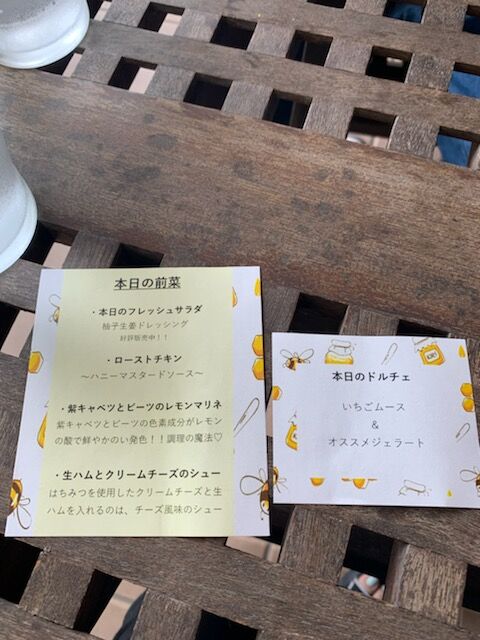 本日の前菜
・本日のフレッシュサラダ
柚子生姜ドレッシング
好評販売中！！
・ローストチキン
〜ハニーマスタードソース〜
・紫キャベツとビーツのレモンマリネ
紫キャベツとビーツの色素成分がレモン
の酸で鮮やかのい発色！！調理の魔法♡
・生ハムとクリームチーズのシュー
はちみつを使用したクリームチーズと生
ハムを入れるのは、チーズ風味のシュー
本日のドルチェ
いちごムース
&
オススメジェラート